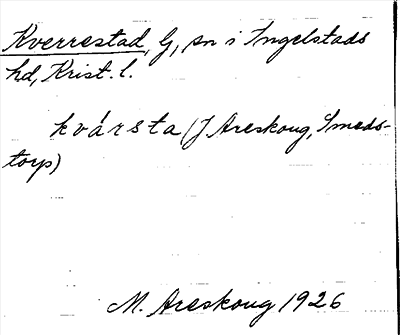 Kverrestad, G, sn i Ingelstads
hd, Krist. l.
kvársta (J Areskoug, Smeds-
torp)
M. Areskoug 1926